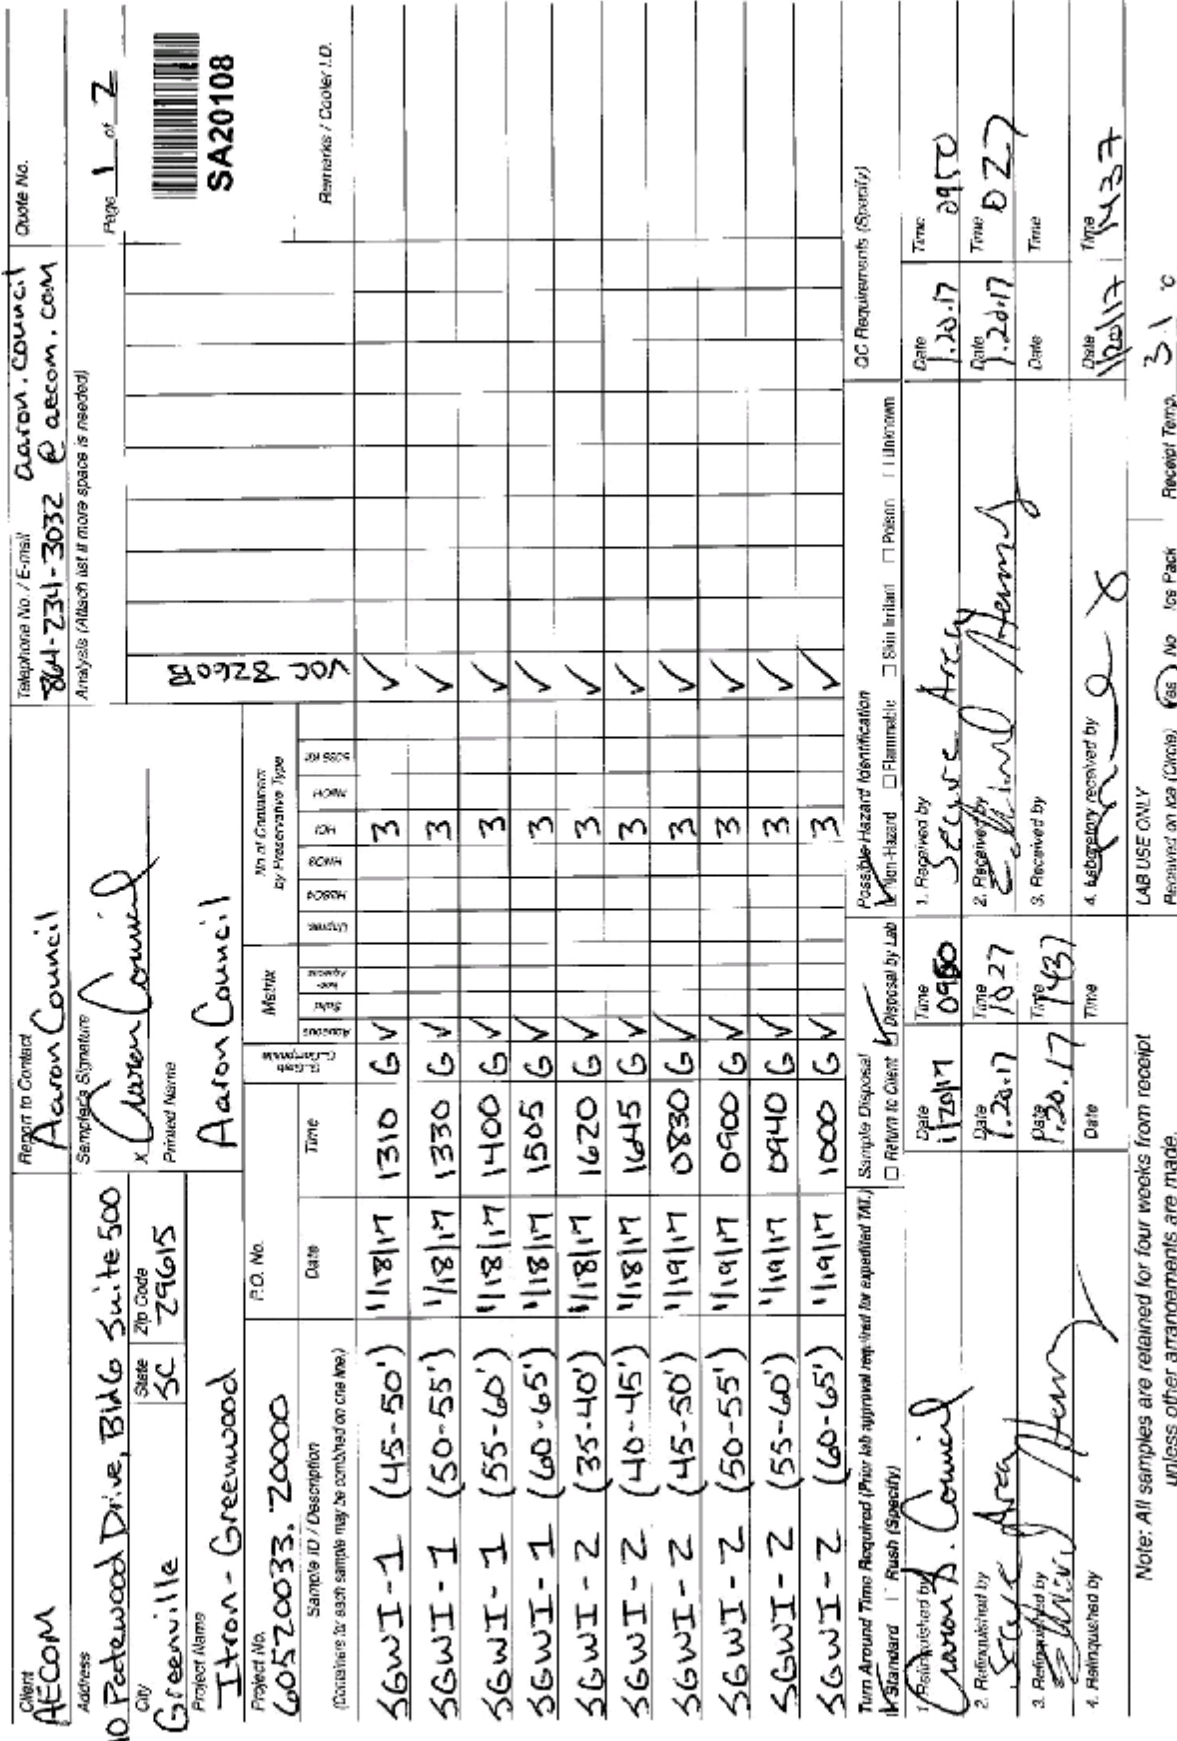 Client
AECOM
Report to Contact
Aaron Council
Telephone No. / E-mail
864-234-3032 aaron.council
@ aecom.com
Quote No.
Address
10 Patewood Drive, Bldg Suite 500
Sampler's Signature
x Aaron Council
Analysis (Attach list if more space is needed)
Page 1 of 2
City
Greenville
State
SC
Zip Code
29615
Printed Name
Aaron Council
VOC 8260B
SA20108
Project Name
Itron - Greenwood
Project No.
60520033.20000
P.O. No.
Matrix
No of Containers
by Preservative Type
Sample ID / Description
(Containers for each sample may be combined on one line.)
Date
Time
Aqueous
Solid
Unpres.
H2SO4
HNO3
HCl
NaOH
5035 Kit
Remarks / Cooler I.D.
SGWI-1 (45-50') 1/18/17 1310 G ✓ 3 ✓
SGWI-1 (50-55') 1/18/17 1330 G ✓ 3 ✓
SGWI-1 (55-60') 1/18/17 1400 G ✓ 3 ✓
SGWI-1 (60-65') 1/18/17 1505 G ✓ 3 ✓
SGWI-2 (35-40') 1/18/17 1620 G ✓ 3 ✓
SGWI-2 (40-45') 1/18/17 1645 G ✓ 3 ✓
SGWI-2 (45-50') 1/19/17 0830 G ✓ 3 ✓
SGWI-2 (50-55') 1/19/17 0900 G ✓ 3 ✓
SGWI-2 (55-60') 1/19/17 0940 G ✓ 3 ✓
SGWI-2 (60-65') 1/19/17 1000 G ✓ 3 ✓
Turn Around Time Required (Prior lab approval required for expedited TAT.)
Standard Rush (Specify)
Sample Disposal
Return to Client Disposal by Lab
Possible Hazard Identification
Non-Hazard Flammable Skin Irritant Poison Unknown
QC Requirements (Specify)
1. Relinquished by
Aaron D. Council
Date
1/20/17
Time
0950
1. Received by
Date
1.20.17
Time
0950
2. Relinquished by
Date
1.20.17
Time
1027
2. Received by
Date
1.20.17
Time
3. Relinquished by
Date
1.20.17
Time
1437
3. Received by
Date
Time
4. Relinquished by
Date
Time
4. Laboratory received by
Date
1/20/17
Time
1437
Note: All samples are retained for four weeks from receipt
unless other arrangements are made.
LAB USE ONLY
Received on ice (Circle) Yes No Ice Pack Receipt Temp. 3.1 °C